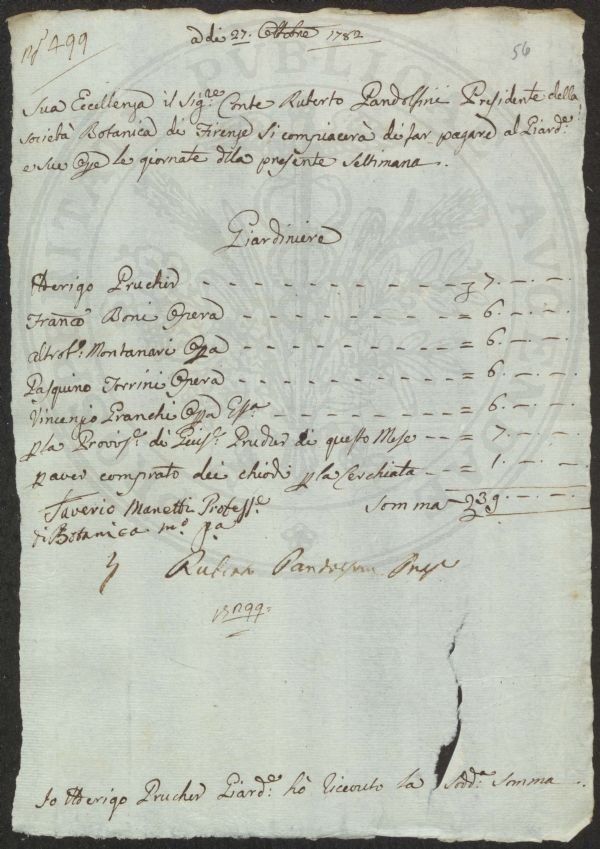 499
adi 27. Ottobre 1782
56
Sua Eccellenza il Sig.re Conte Ruberto Pandolfini Presidente della
società Botanica di Firenze si compiacerà di far pagare al Giard.e
e sue Ope le giornate dlla presente Settimana.
Giardiniere
Aderigo Prucher - - - - - - - - - - - 7. -. -.
Franco Boni Opera - - - - - - - - - = 6. -. -.
Montanari Opa - - - - - - - - - = 6. -. -.
Pasquino Torrini Opera - - - - - - - - = 6. -. -.
Vincenzio Pranchi Opa - - - - - - - = 6. -. -.
pla Provvis.e di Prucher di questo Mese - - = 7. -. -.
paver comprato dei chiodi pla Cerchiata - - = 1. -. -.
Saverio Manetti Profess.e Somma 39. -. -.
di Botanica m.o pa
Pandolfini Pres
299
Io Aderigo Prucher Giard.e hò ricevuto la Sodd.a Somma
PVBLICO